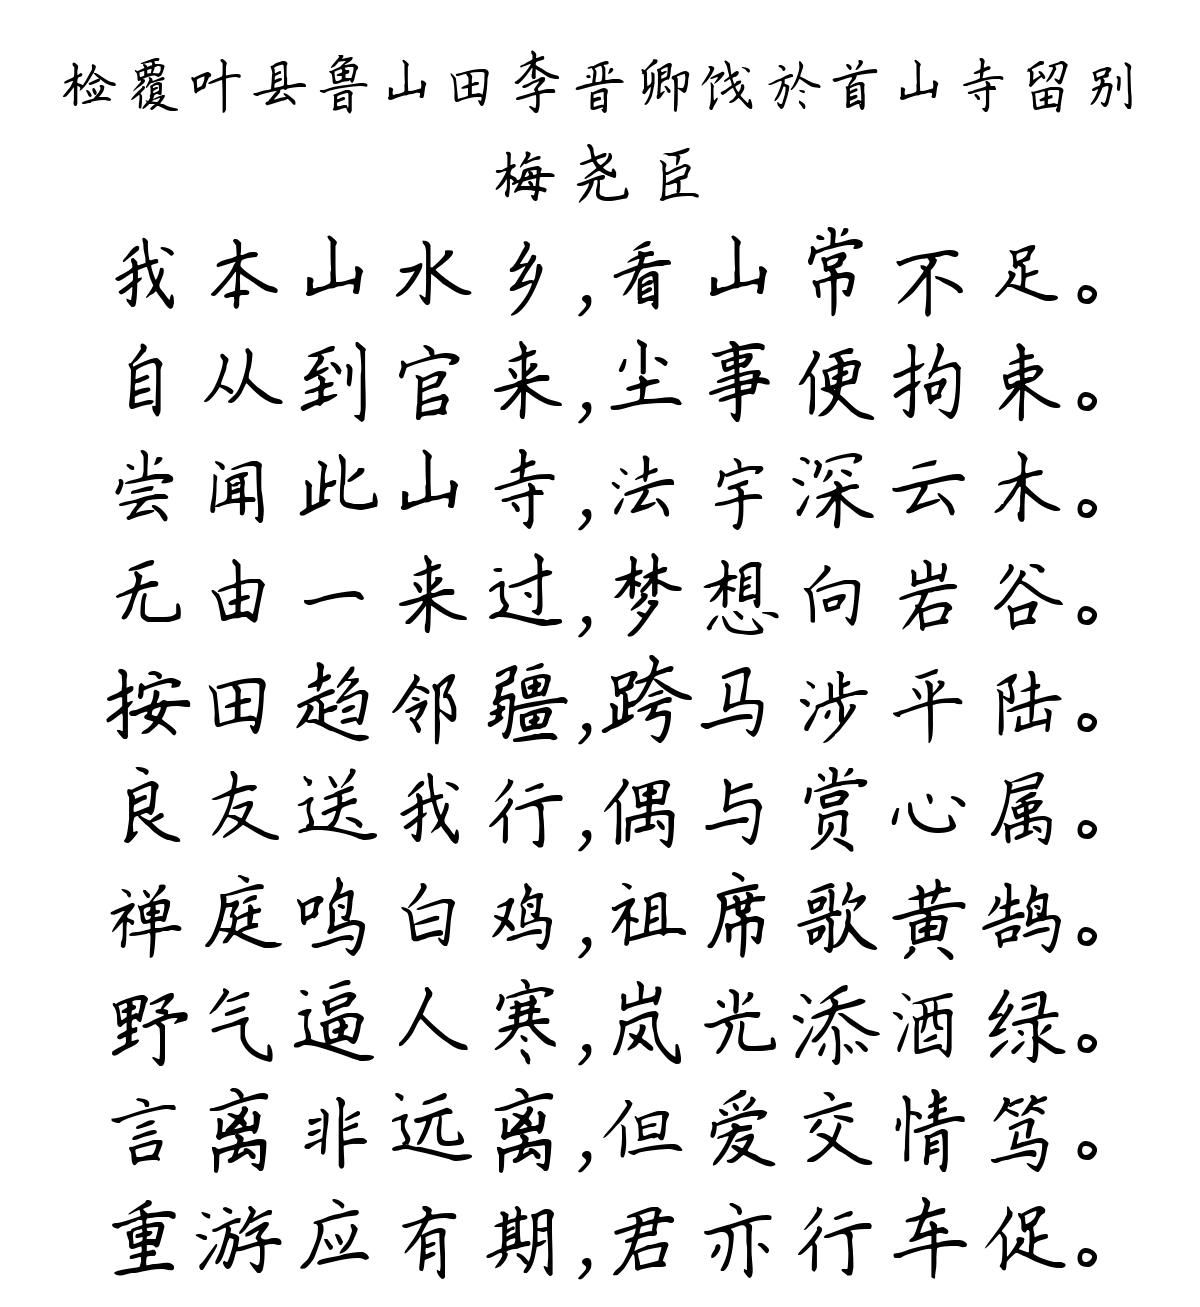 检覆叶县鲁山田李晋卿饯於首山寺留别
梅尧臣
我本山水乡,看山常不足。
自从到官来,尘事便拘束。
尝闻此山寺,法宇深云木。
无由一来过,梦想向岩谷。
按田趋邻疆,跨马涉平陆。
良友送我行,偶与赏心属。
禅庭鸣白鸡,祖席歌黄鹄。
野气逼人寒,岚光添酒绿。
言离非远离,但爱交情笃。
重游应有期,君亦行车促。